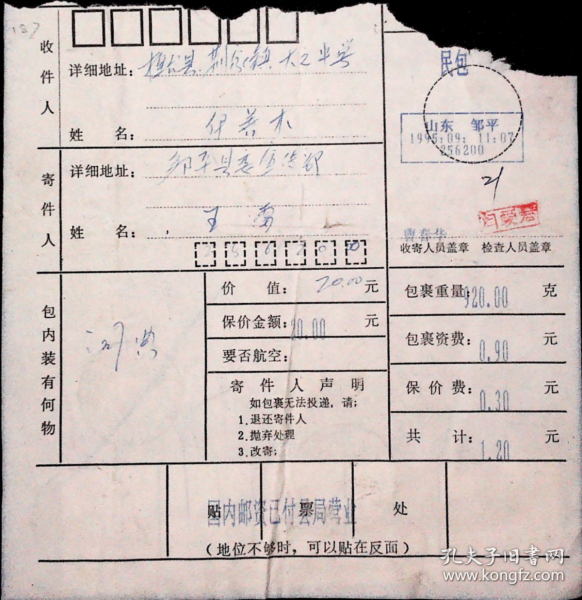 民包
收件人
详细地址：
姓 名：
山东 邹平
1995.09.11.07
256200
21
寄件人
详细地址：邹平县委宣传部
姓 名：王
曹春华
收寄人员盖章 检查人员盖章
包内装有何物
词典
价 值：20.00元
保价金额：20.00元
要否航空：
寄件人声明
如包裹无法投递，请：
1.退还寄件人
2.抛弃处理
3.改寄：
包裹重量：920.00克
包裹资费：0.90元
保价费：0.30元
共 计：1.20元
贴 票 处
国内邮资已付县局营业
（地位不够时，可以贴在反面）
孔夫子旧书网
www.kongfz.com